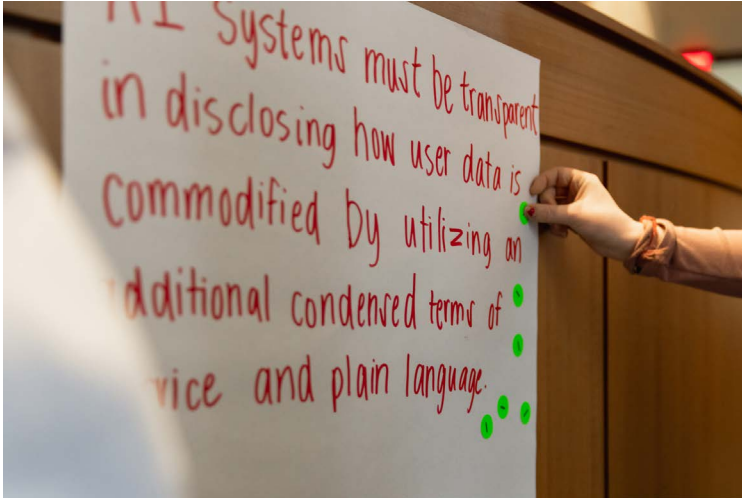 AI Systems must be transparent
in disclosing how user data is
commodified by utilizing an
additional condensed terms of
service and plain language.